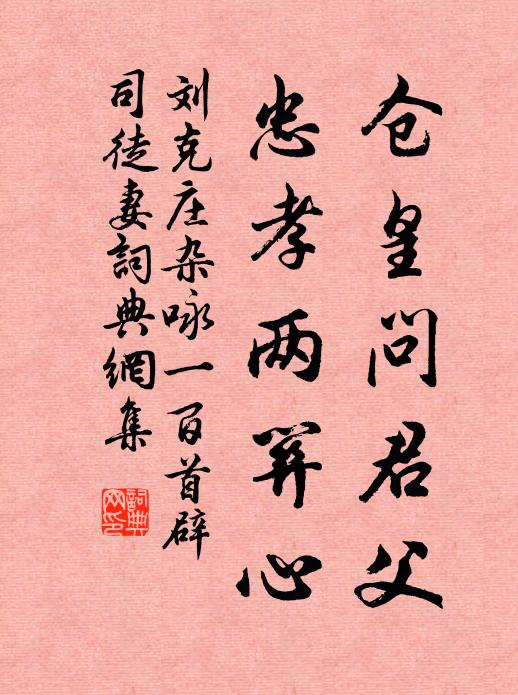 仓皇问君父
忠孝两笄心
刘克庄杂咏一百首辟
司徒妻詞典網集
詞典
网印